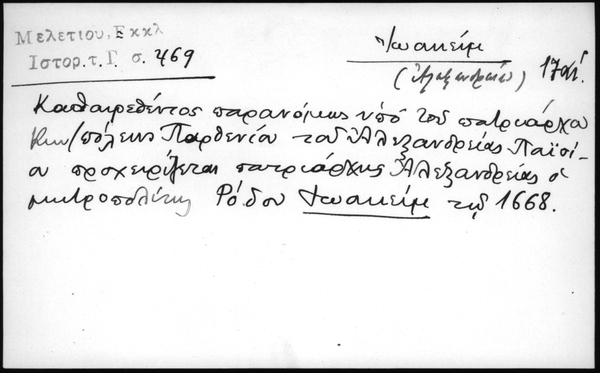 Μελετίου, Εκκλ
Ιστορ. τ. Γ σ. 469
Ἰωακείμ
(Ἀλεξανδρείας) 17ου αἰ.
Καθαιρεθέντος παρανόμως ὑπό τοῦ πατριάρχου
Κων/πόλεως Παρθενίου τοῦ Ἀλεξανδρείας Παϊσί-
ου προχειρίζεται πατριάρχης Ἀλεξανδρείας ὁ
μητροπολίτης Ρόδου Ἰωακείμ τῷ 1668.